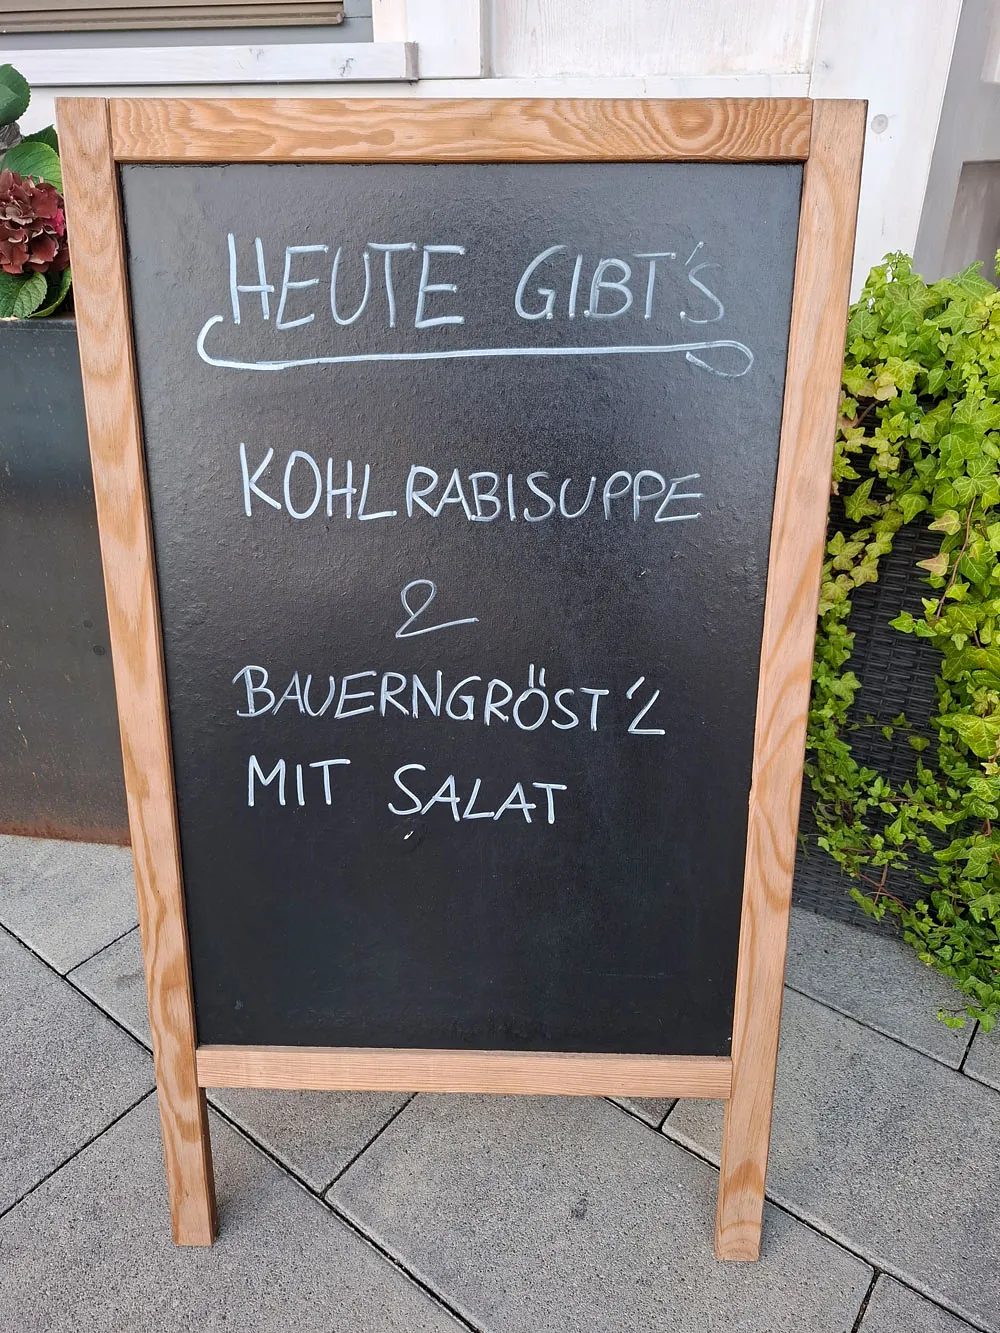 HEUTE GIBT'S
KOHLRABISUPPE
&
BAUERNGRÖST'L
MIT SALAT